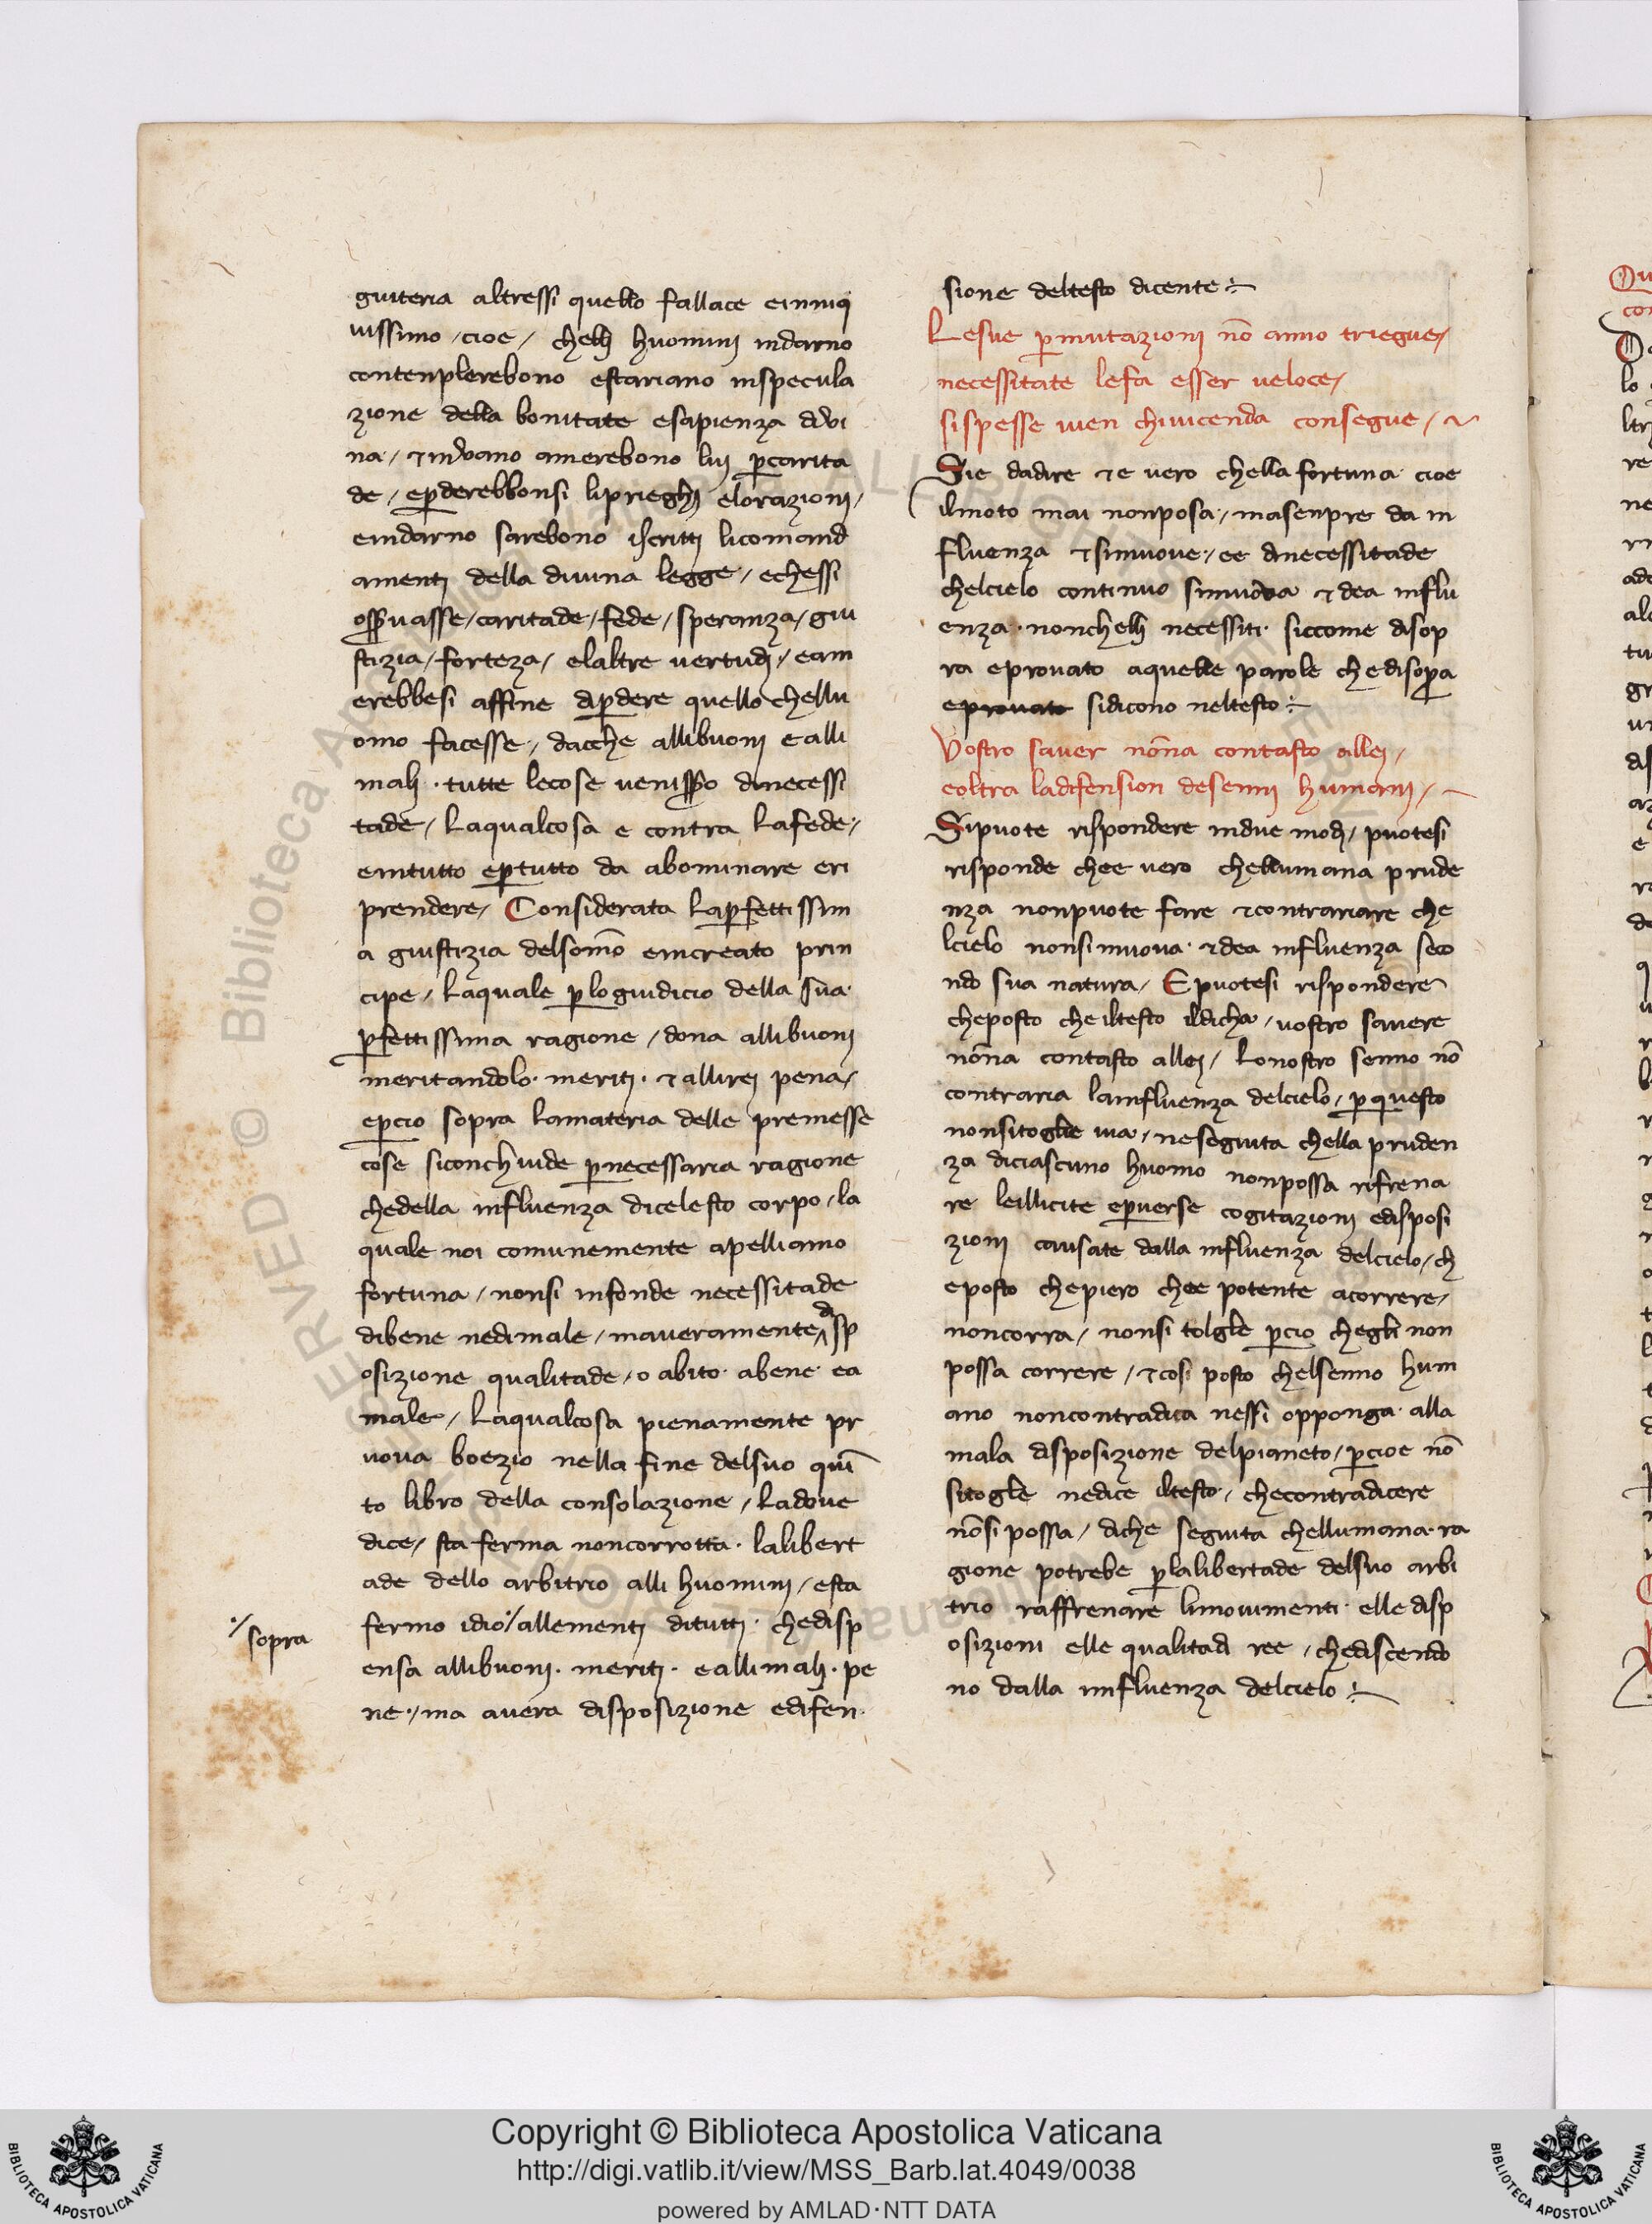 guiteria altressi quello fallace einniq
uissimo / cioe / chelli huomini indarno
contenplerebono estariano inspecula
zione della bonitate esapienza divi
na / et invano amerebono lui p̲carita
de / ep̲derebbonsi liprieghi elorazioni /
eindarno sarebono iscritti licomand
amenti della divina legge / echessi
oss̲uasse / caritade / fede / speranza / giu
stizia / forteza / elaltre vertudi / eam
erebbesi affine dip̲dere quello chellu
omo facesse / dacche allibuoni ealli
mali · tutte lecose veniss̲o dinecessi
tade / Laqualcosa e contra Lafede /
eintutto ep̲tutto da abominare eri
prendere / Considerata Lap̲fettissim
a giustizia delsomō eincreato prin
cipe / Laquale p̲logiudicio della sua
p̲fettissima ragione / dona allibuoni
meritandolo · meriti · et allirei pena /
ep̲cio sopra Lamateria delle premesse
cose siconchiude p̲necessaria ragione
chedella influenza dicelesto corpo / la
quale noi comunemente apelliamo
fortuna / nonsi infonde necessitade
dibene nedimale / maveramente disp
osizione qualitade / o abito · abene · ea
male / Laqualcosa pienamente pr
uova boezio nella fine delsuo quī
to libro della consolazione / Ladoue
dice / sta ferma noncorrotta · lalibert
ade dello arbitrio alli huomini / esta
fermo idio ·/ allementi ditutti · chedisp
·/ sopra
ensa allibuoni · meriti · eallimali · pe
ne · / ma avera disposizione edifen
sione deltesto dicente
Lesue p̲mutazioni nō anno triegue /
necessitate lefa esser veloce /
sispesse vien chivicenda consegue /
Sie dadire et e vero chella fortuna cioe
ilmoto mai nonposa / masenpre da in
fluenza et simuove / ee dinecessitade
chelcielo continuo simuova et dea influ
enza · nonchelli necessiti · siccome disop
ra eprovato aquelle parole chedisop̲a
eprovato sidicono neltesto
Vostro saver nōna contasto allei /
eoltra ladifension desenni humani /
Sipuote rispondere indue modi / puotesi
risponde chee vero chellumana prude
nza nonpuote fare et contrariare che
lcielo nonsimuova · et dea influenza seco
ndo sua natura / Epuotesi rispondere
cheposto che iltesto ildicha / vostro savere
nōna contasto allei / Lonostro senno nō
contraria lainfluenza delcielo / p̲questo
nonsitoglie via / neseguita chella pruden
za diciascuno huomo nonpossa rifrena
re leillicite ep̲verse cogitazioni edisposi
zioni causate dalla influenza delcielo / ch
eposto chepiero chee potente acorrere /
noncorra / nonsi tolglie p̲cio chegli non
possa correre / et cosi posto chelsenno hum
ano noncontradica nessi opponga · alla
mala disposizione delpianeto / p̲cioe nō
sitoglie nedice iltesto / checontradicere
nōsi possa / diche seguita chellumana ra
gione potrebe p̲lalibertade delsuo arbi
trio raffrenare limovimenti · elle disp
osizioni elle qualitadi ree / chediscendo
no dalla influenza delcielo
Copyright © Biblioteca Apostolica Vaticana
http://digi.vatlib.it/view/MSS_Barb.lat.4049/0038
powered by AMLAD·NTT DATA
BIBLIOTECA APOSTOLICA VATICANA
BIBLIOTECA APOSTOLICA VATICANA